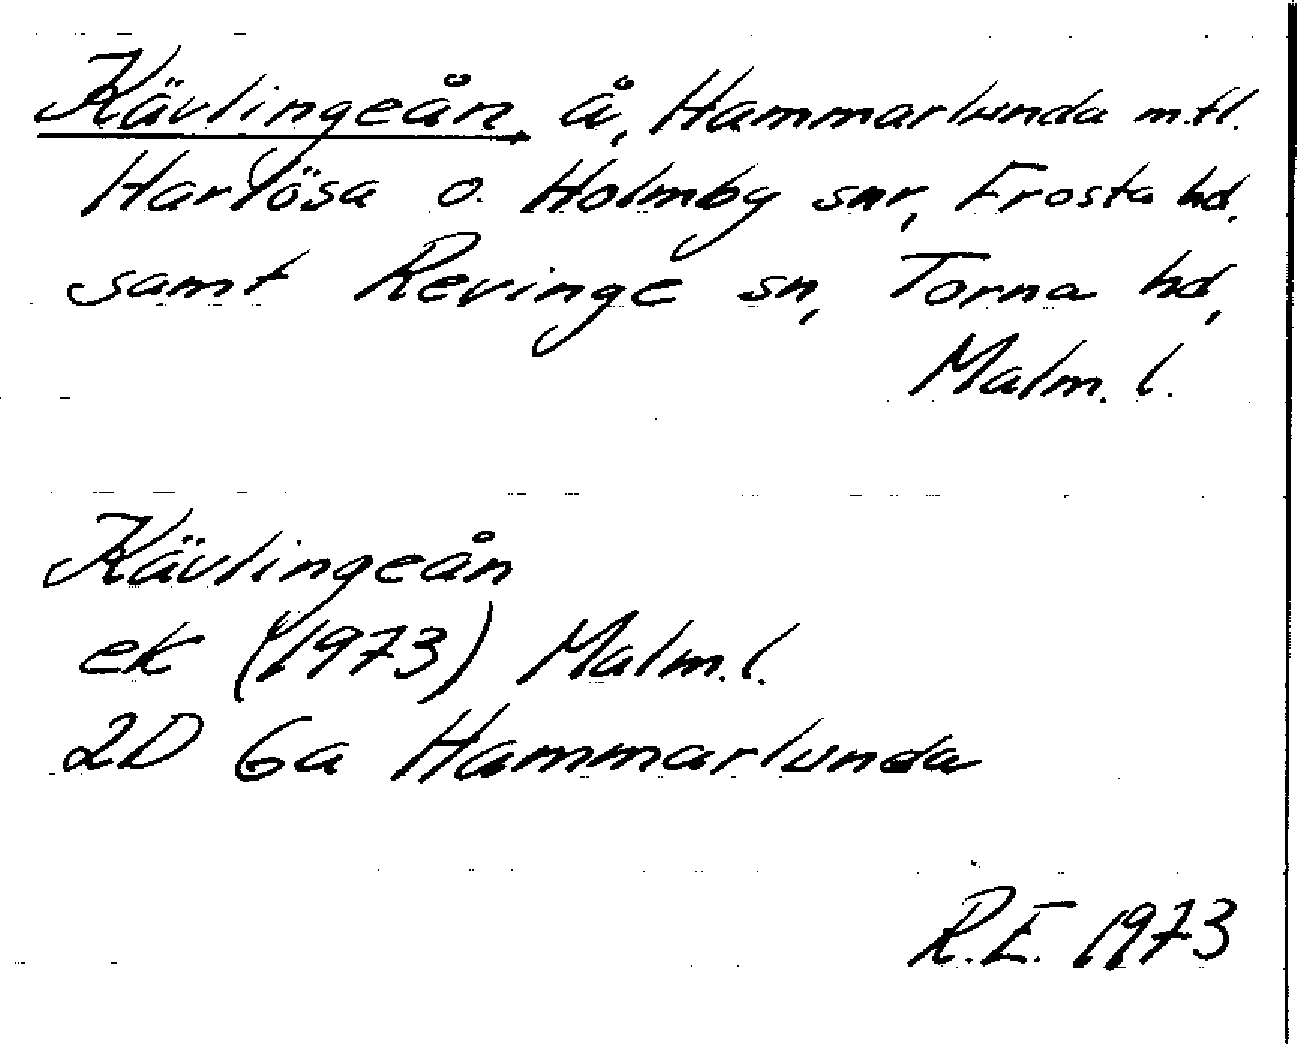 Kävlingeån, å, Hammarlunda m.fl.
Harlösa o. Holmby snr, Frosta hd,
samt Revinge sn, Torna hd,
Malm. l.
Kävlingeån
ek (1973) Malm. l.
2D 6a Hammarlunda
R.E. 1973